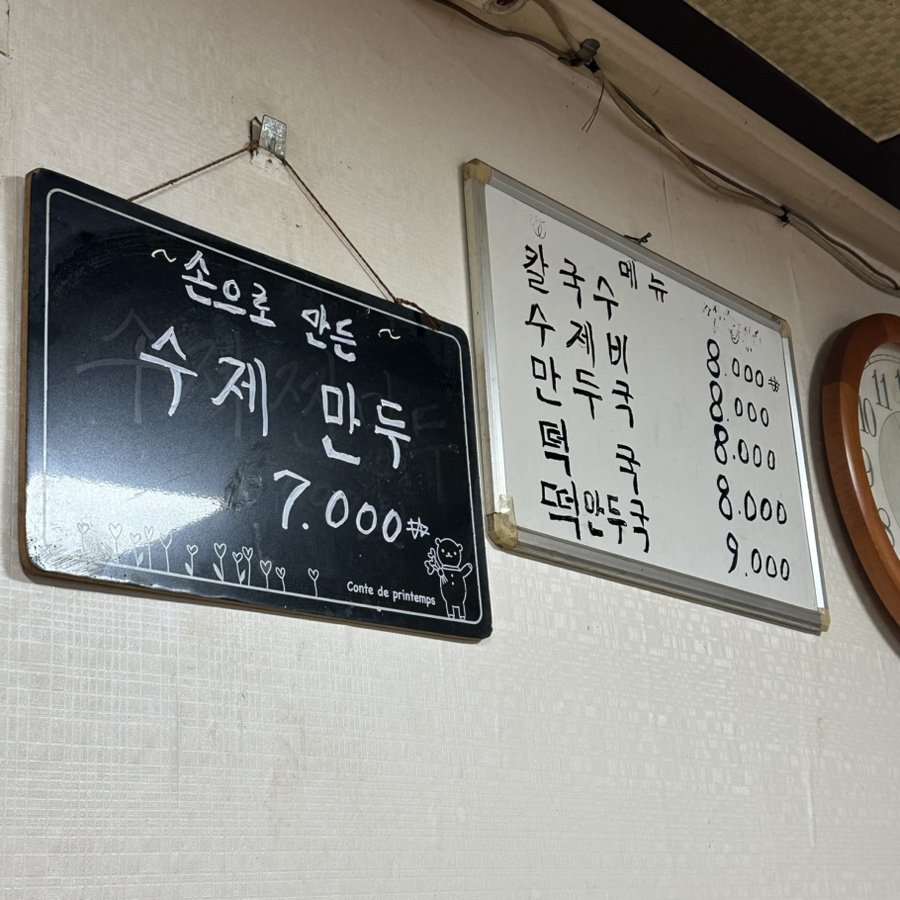 ~손으로 만든~
수제 만두
7.000₩
Conte de printemps
메뉴
칼국수 8.000₩
수제비 8.000
만두국 8.000
떡국 8.000
떡만두국 9.000
11
10
9
8